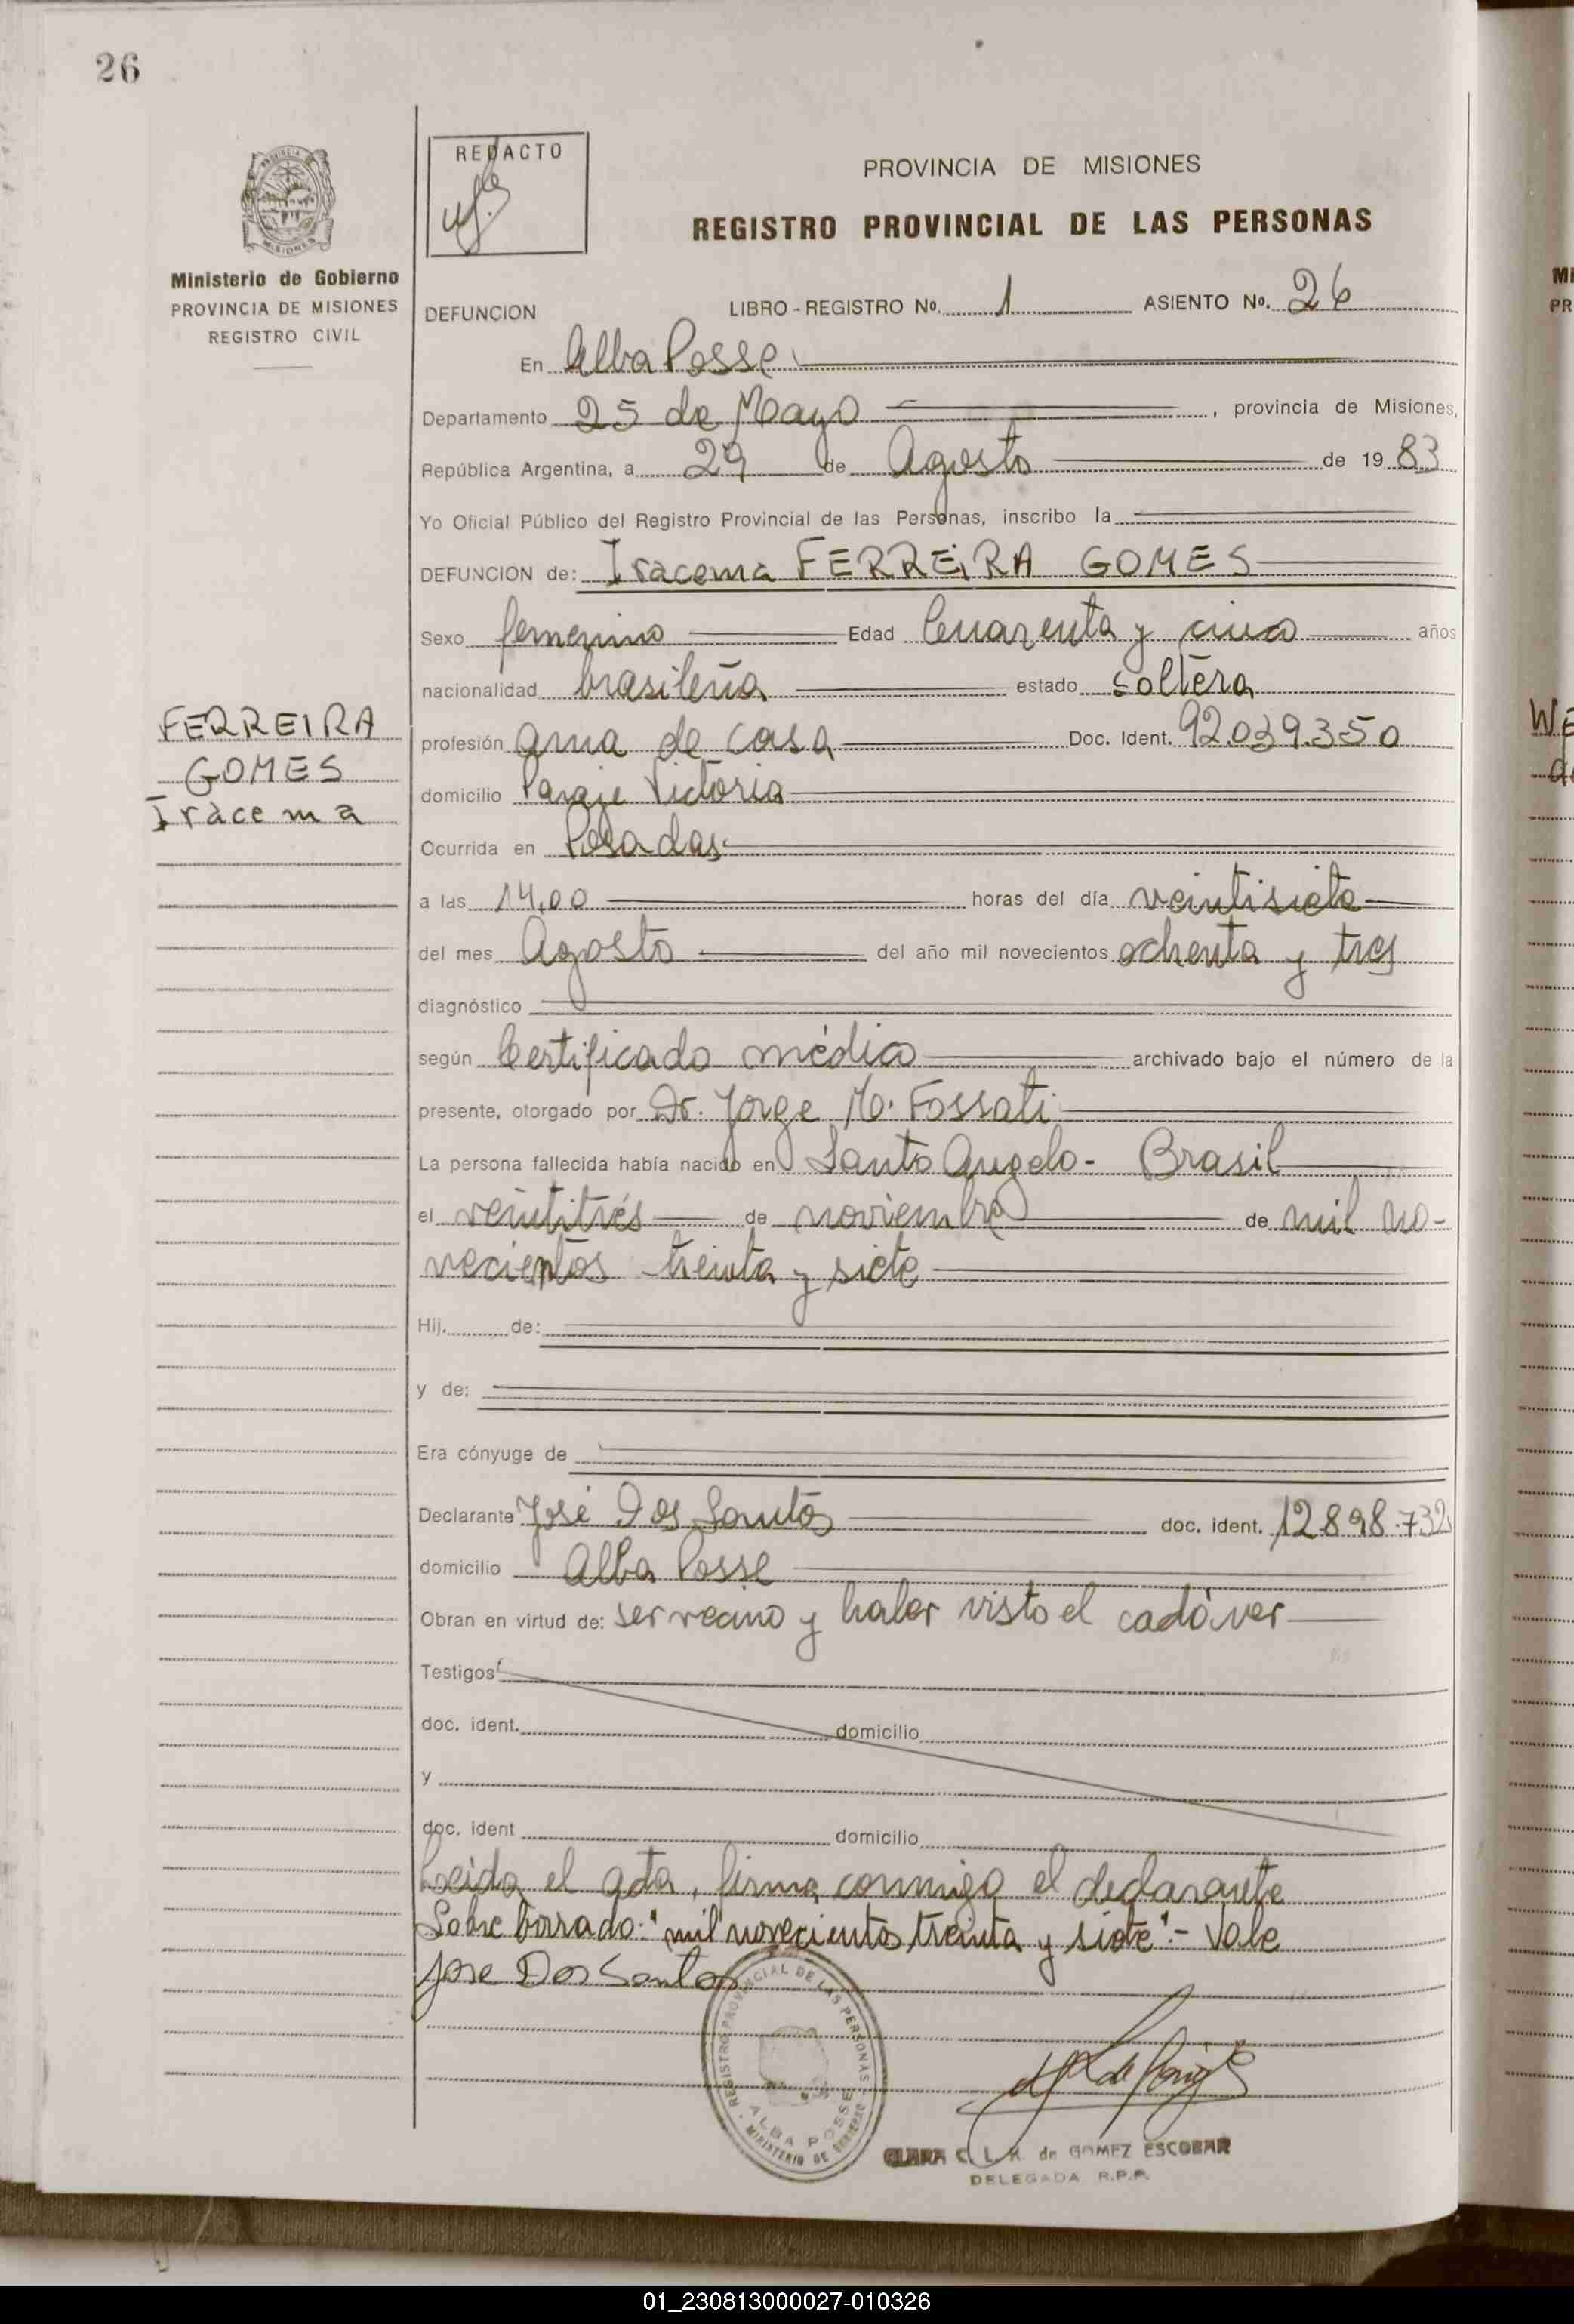 26
REDACTO
PROVINCIA DE MISIONES
REGISTRO PROVINCIAL DE LAS PERSONAS
Ministerio de Gobierno
PROVINCIA DE MISIONES
REGISTRO CIVIL
DEFUNCION LIBRO - REGISTRO Nº. 1 ASIENTO Nº. 26
En Alba Posse
Departamento 25 de Mayo, provincia de Misiones,
República Argentina, a 29 de Agosto de 19 83
Yo Oficial Público del Registro Provincial de las Personas, inscribo la
DEFUNCION de: Iracema FERREIRA GOMES
Sexo femenino Edad Cuarenta y cinco años
nacionalidad brasileña estado soltera
FERREIRA
GOMES
Iracema
profesión ama de casa Doc. Ident. 92.039.350
domicilio Paraje Victoria
Ocurrida en Posadas
a las 14,00 horas del día veintisiete
del mes Agosto del año mil novecientos ochenta y tres
diagnóstico
según Certificado médico archivado bajo el número de la
presente, otorgado por Dr. Jorge M. Fossati
La persona fallecida había nacido en Santo Angelo - Brasil
el veintitrés de noviembre de mil no-
vecientos treinta y siete
Hij. de:
y de:
Era cónyuge de
Declarante José Dos Santos doc. ident. 12.898.732
domicilio Alba Posse
Obran en virtud de: ser vecino y haber visto el cadáver
Testigos
doc. ident. domicilio
y
doc. ident domicilio
Leida el acta, firma conmigo el declarante
Sobre borrado: "mil novecientos treinta y siete" - Vale
Jose Dos Santos
REGISTRO PROVINCIAL DE LAS PERSONAS
ALBA POSSE
MINISTERIO DE GOBIERNO
CLARA C. L. M. de GOMEZ ESCOBAR
DELEGADA R.P.P.
01_230813000027-010326